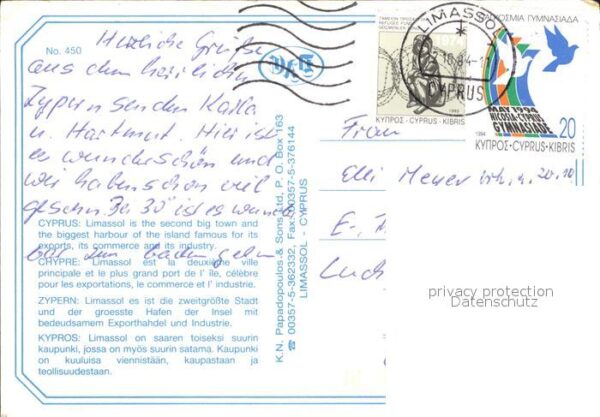 No. 450
Herzliche Grüße
aus dem herrlichen
Zypern senden Karla
u. Hartmut. Hier ist
es wunderschön und
wir haben schon viel
gesehn. Bei 30° ist es wunder
bar zum baden gehn
CYPRUS: Limassol is the second big town and
the biggest harbour of the island famous for its
exports, its commerce and its industry.
CHYPRE: Limassol est la deuxième ville
principale et le plus grand port de l' île, célèbre
pour les exportations, le commerce et l' industrie.
ZYPERN: Limassol es ist die zweitgrößte Stadt
und der groesste Hafen der Insel mit
bedeudsamem Exporthandel und Industrie.
KYPROS: Limassol on saaren toiseksi suurin
kaupunki, jossa on myös suurin satama. Kaupunki
on kuuluisa viennistään, kaupastaan ja
teollisuudestaan.
K.N. Papadopoulos & Sons Ltd, P. O. Box 163
☎ 00357-5-362332, Fax: 00357-5-376144
LIMASSOL - CYPRUS
1974
ΚΥΠΡΟΣ·CYPRUS·KIBRIS
LIMASSOL
CYPRUS
ΠΑΓΚΟΣΜΙΑ ΓΥΜΝΑΣΙΑΔΑ
MAY 1994
NICOSIA-CYPRUS
GYMNASIADE
20
1994
ΚΥΠΡΟΣ·CYPRUS·KIBRIS
Frau
Elli Meyer
privacy protection
Datenschutz